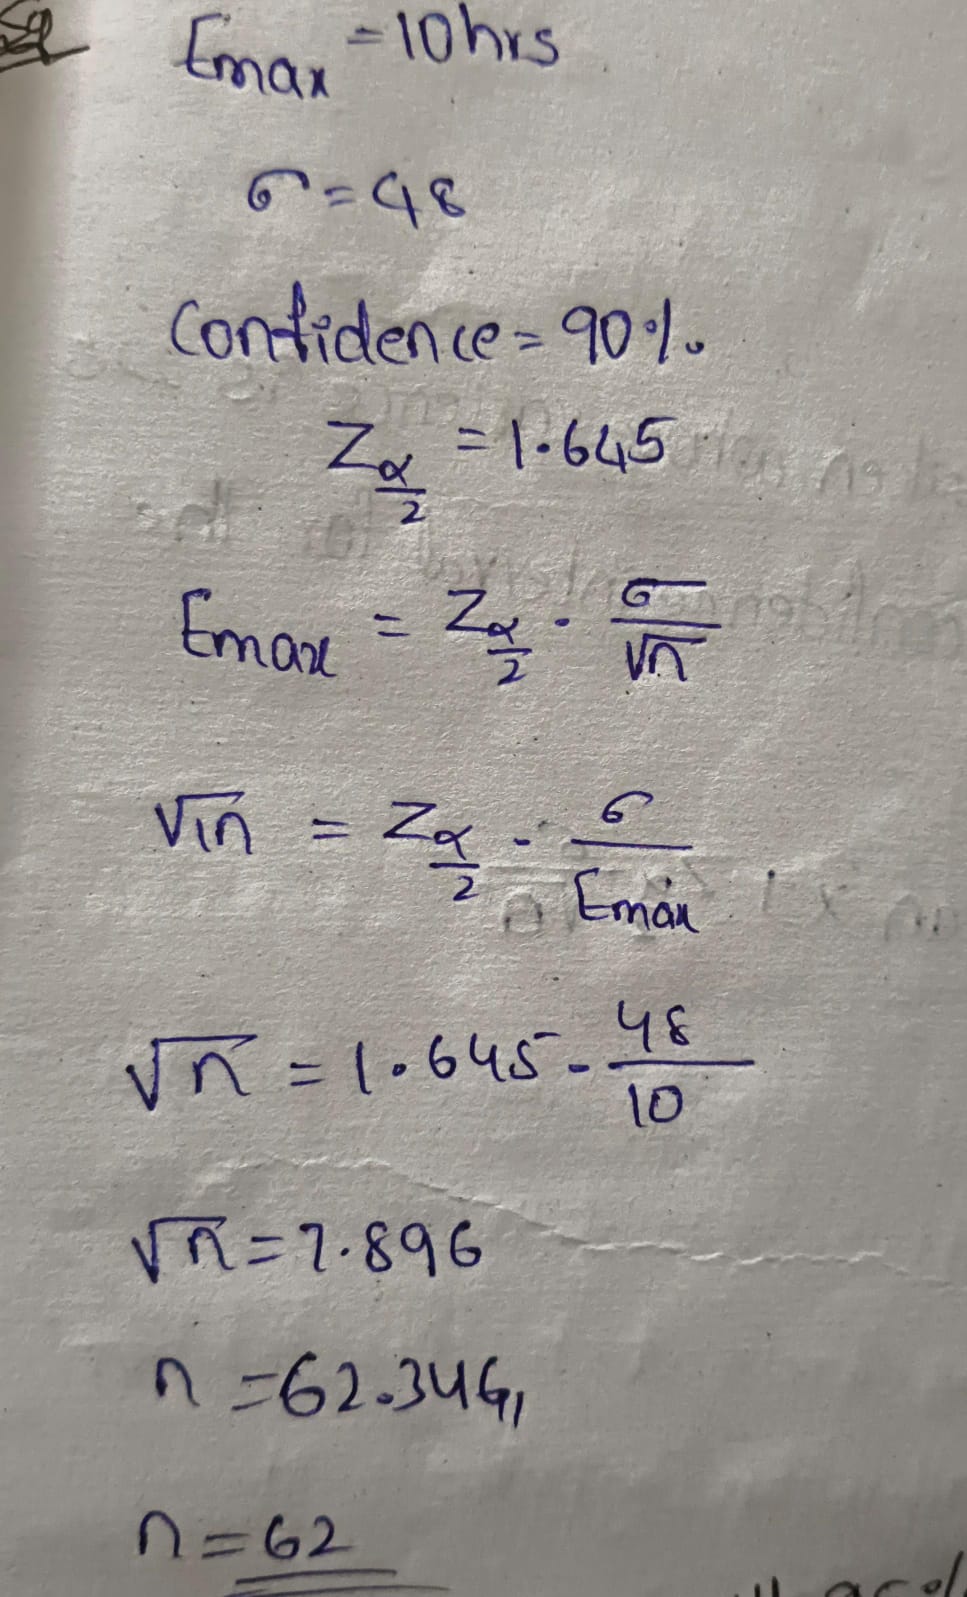 Emax = 10hrs
σ = 48
Confidence = 90%
Zα/2 = 1.645
Emax = Zα/2 . σ/√n
√n = Zα/2 . σ/Emax
√n = 1.645 . 48/10
√n = 7.896
n = 62.346,
n = 62